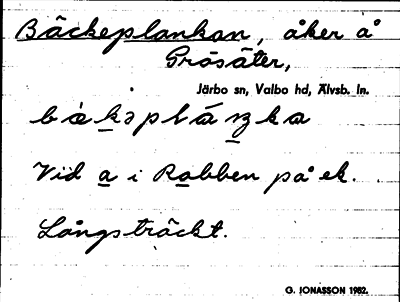 Bäckeplankan, åker å
Gräsäter,
Järbo sn, Valbo hd, Älvsb. ln.
bàkəplánka
Vid a i Rabben på ek.
Långsträckt.
G. JONASSON 1982.